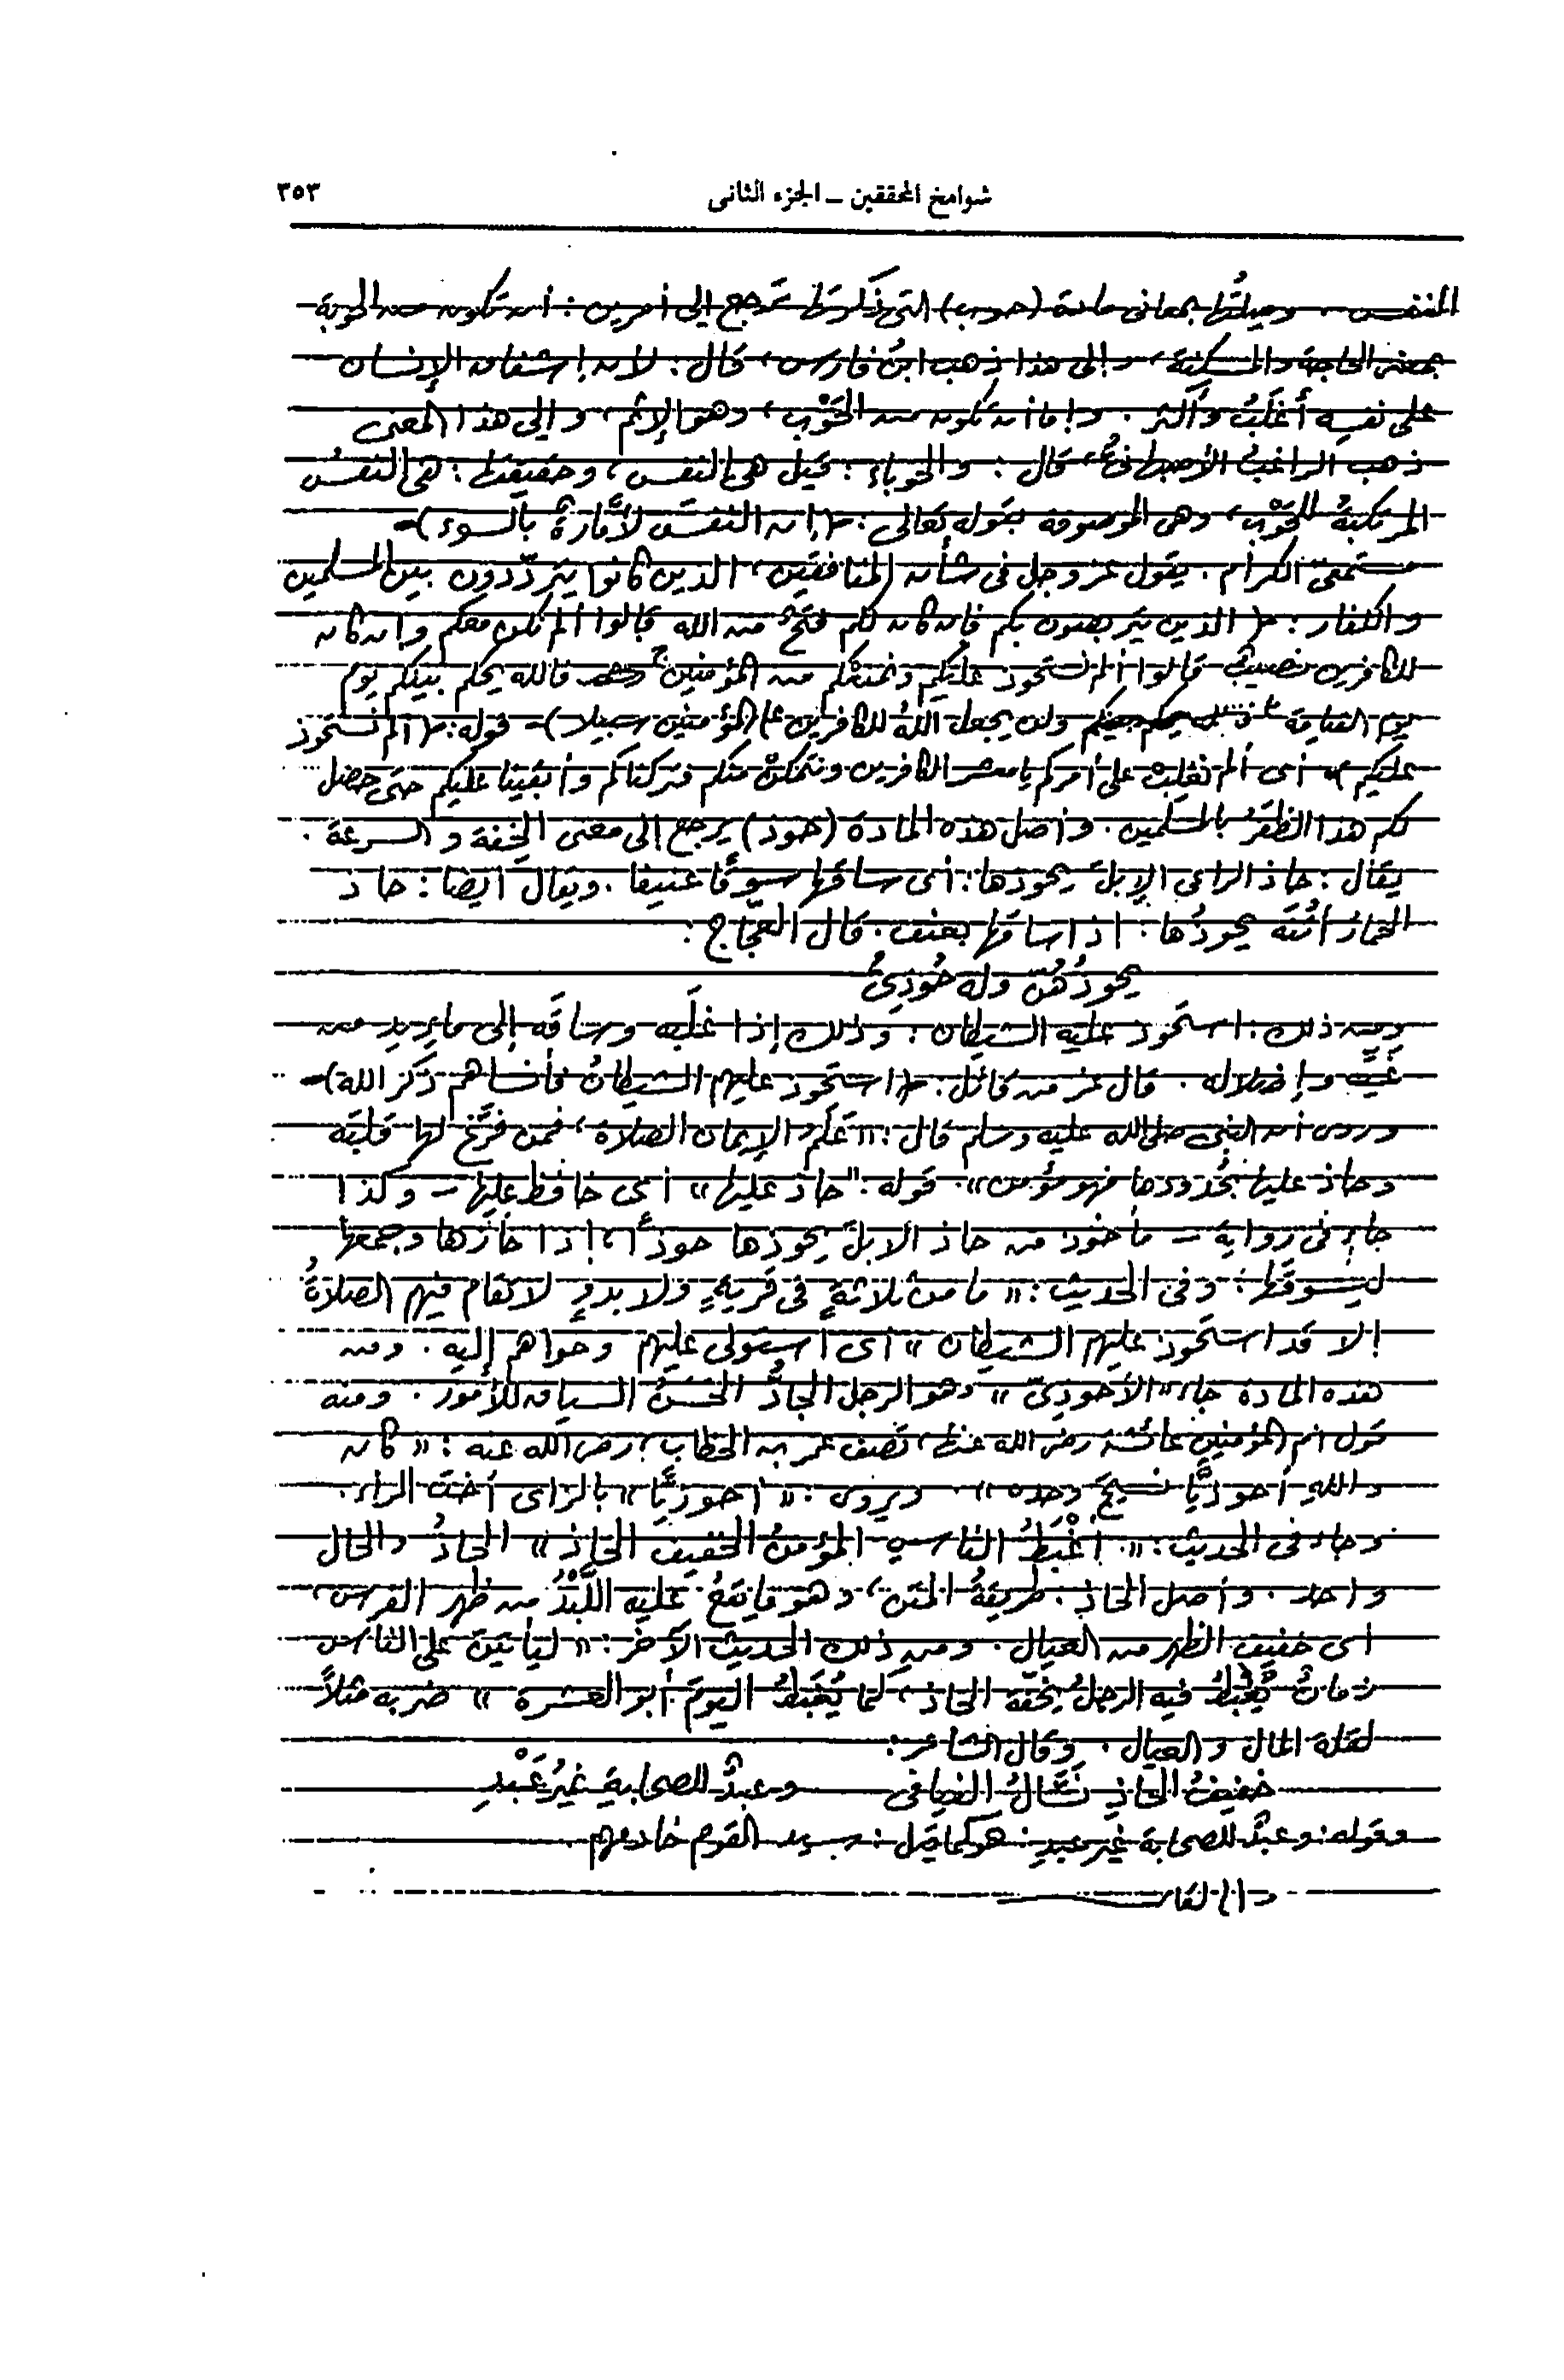 شوامخ المحققين ــ الجزء الثانى ٣٥٣
النفس، وصلتُها بمعانى مادة (حوب) التى ذَكَرتُها تَرجع إلى أمرين: أن تكون من الحوبة
بمعنى الحاجة والمسكنة، وإلى هذا ذهب ابنُ فارس، قال: لأن إشفاق الإنسان
على نفسِه أغلَبُ وأكثر. وإما أن تكون من الحَوْب، وهو الإثم، وإلى هذا المعنى
ذهب الراغبُ الأصبهانىُّ، قال: والحوباء: قيل هى النفس، وحقيقتها: هى النفسُ
المرتكبةُ للحَوْب، وهى الموصوفة بقوله تعالى: (إن النفسَ لأمَّارةٌ بالسوء)
مستمعىَّ الكرام. يقول عز وجل فى شأن المنافقين، الذين كانوا يتردّدون بين المسلمين
والكفار: (الذين يتربصون بكم فإن كان لكم فتحٌ من الله قالوا ألم نكن معكم وإن كان
للكافرين نصيبٌ قالوا ألم نستحوذ عليكم ونمنعْكم من المؤمنين فالله يحكم بينكم يوم
يوم القيامة ولن يجعل اللهُ للكافرين على المؤمنين سبيلا) قوله: (ألم نستحوذ
عليكم) أى ألم نغلبْ على أمركم يا معشر الكافرين ونتمكنْ منكم فتركناكم وأبقينا عليكم حتى حصل
لكم هذا الظفَرُ بالمسلمين. وأصل هذه المادة (حوذ) يرجع إلى معنى الخِفة والسرعة.
يقال: حاذ الراعى الإبلَ يحوذها: أى ساقها سوقًا عنيفا. ويقال أيضا: حاذ
الحمارُ أُتُنَه يحوذُها: إذا ساقها بعنف. قال العجّاج:
يحوذُهُنّ وله حُوذِىُّ
ومن ذلك: استحوذ عليه الشيطان: وذلك إذا غلَبه وساقَه إلى ما يريد من
غَيِّه وإضلاله. قال عز من قائل: (استحوذ عليهم الشيطانُ فأنساهم ذكر الله)
وروى أن النبى صلى الله عليه وسلم قال: «عَلَمُ الإيمان الصلاة، فمن فَرَّغ لها قلبَه
وحاذ عليها بحُدودها فهو مؤمن». قوله: "حاذ عليها» أى حافظ عليها – وكذا
جاء فى رواية – مأخوذ من حاذ الإبلَ يحوذها حوذاً، إذا حازها وجمعها
ليسوقَها. وفى الحديث: «ما من ثلاثةٍ فى قريةٍ ولا بدوٍ لا تقام فيهم الصلاةُ
إلا قد استحوذ عليهم الشيطان» أى استولى عليهم وحواهم إليه. ومن
هذه المادة جاء «الأحوذِىّ» وهو الرجل الجادُّ الحَسَنُ السياق للأمور. ومنه
قول أم المؤمنين عائشة رضى الله عنها، تصف عمر بن الخطاب، رضى الله عنه: «كان
واللهِ أحوذِيًّا نسيجَ وَحدِه» ويروى: «أحوزيًّا» بالزاى أخت الراء.
وجاء فى الحديث: «أغْبَطُ الناس المؤمنُ الخفيف الحاذ» الحاذُ والحال
واحد. وأصل الحاذ: طريقةُ المتن، وهو ما يقعُ عليه اللِّبْدُ من ظهر الفرس،
أى خفيف الظهر من العيال. ومن ذلك الحديث الآخر: «ليأتينّ على الناس
زمانٌ يُغْبَطُ فيه الرجلُ بخفّة الحاذ، كما يُغبَطُ اليومَ أبو العشرة» ضربه مثلاً
لقلة المال والعيال. وقال الشاعر:
خفيفُ الحاذِ نَسَّالُ الفيافى وعبدٌ للصحابةِ غيرُ عَبْدِ
وقوله: وعبدٌ للصحابة غير عبدِ: هو كما قيل: سيد القوم خادمهم.